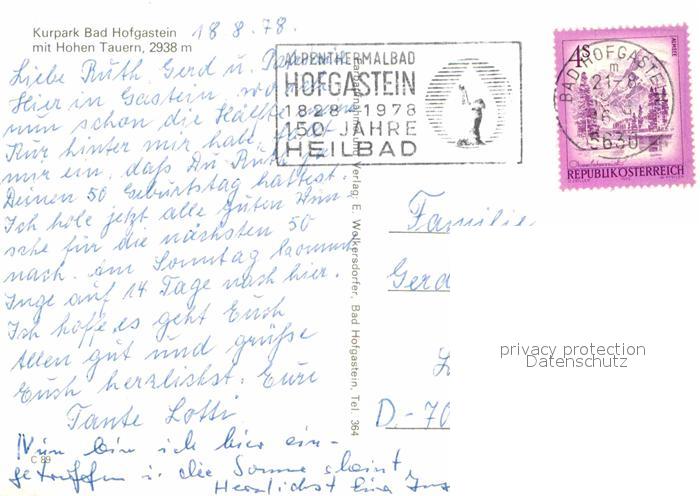 Kurpark Bad Hofgastein
mit Hohen Tauern, 2938 m
18.8.78.
Liebe Ruth, Gerd u.
Hier in Gastein, wo ich
nun schon die Hälfte der
Kur hinter mir habe, fiel
mir ein, daß Du Ruth
Deinen 50 Geburtstag hattest.
Ich hole jetzt alle guten Wün-
sche für die nächsten 50
nach. Am Sonntag kommt
Inge auf 14 Tage nach hier.
Ich hoffe, es geht Euch
Allen gut und grüße
Euch herzlichst. Eure
Tante Lotti
Nun bin ich hier ein-
getroffen u. die Sonne scheint,
Herzlichst Eure
C 89
Verlag E. Wolkersdorfer, Bad Hofgastein, Tel. 364
ALPENTHERMALBAD
HOFGASTEIN
1828-1978
150 JAHRE
HEILBAD
4S
ALMSEE
BAD HOFGASTEIN
21.-8
5630
REPUBLIK ÖSTERREICH
Familie
Gerd
D-70
privacy protection
Datenschutz